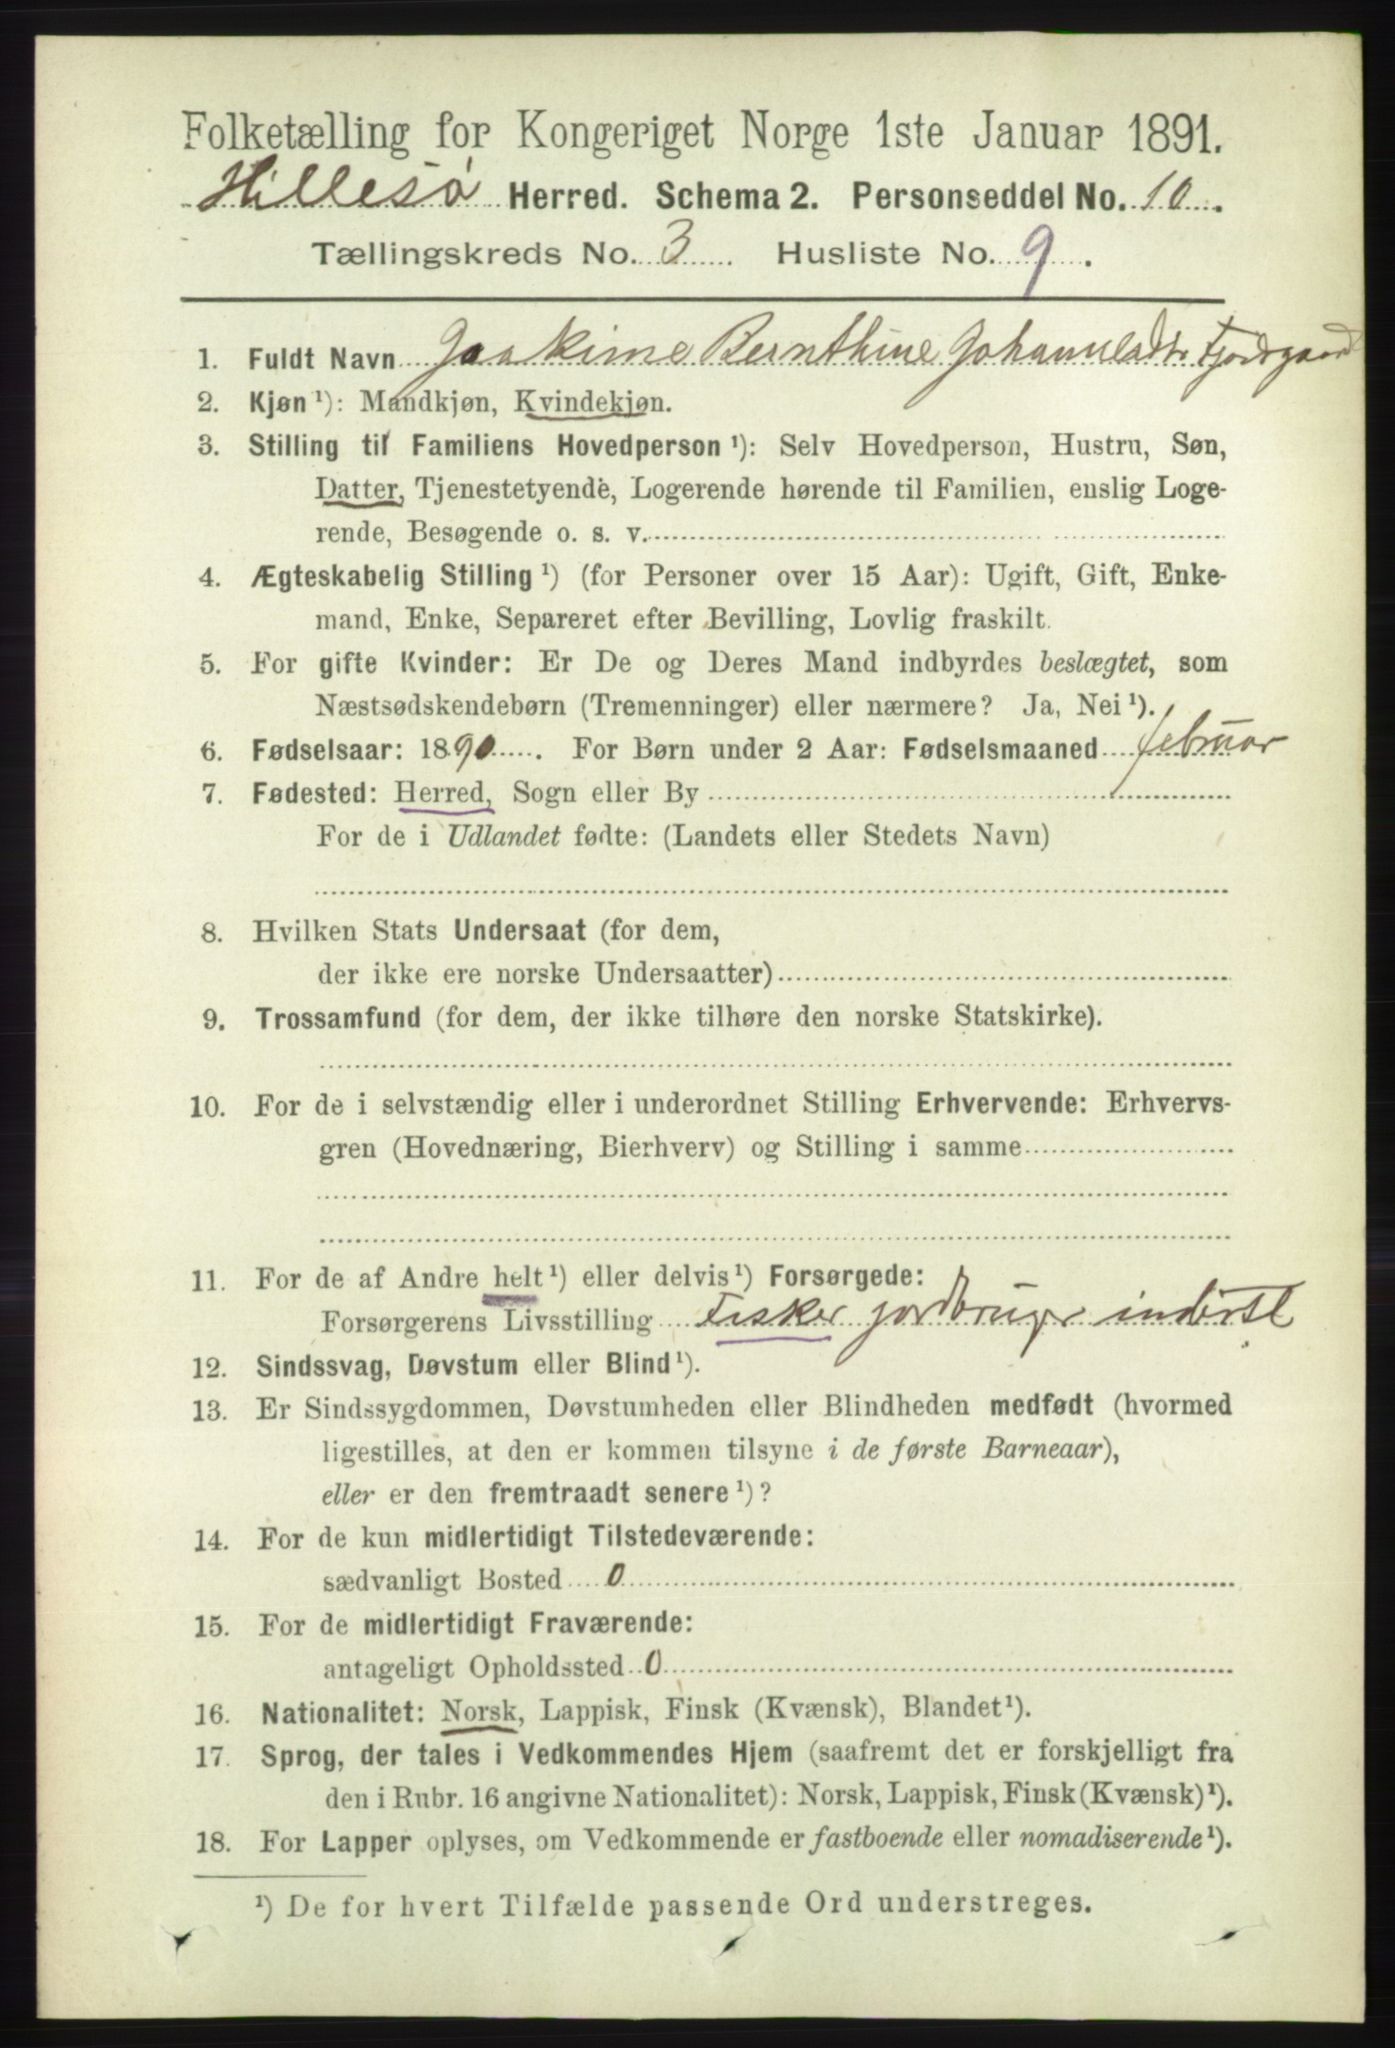 Folketælling for Kongeriget Norge 1ste Januar 1891.
Hillesø Herred. Schema 2. Personseddel No. 10.
Tællingskreds No. 3 Husliste No. 9.
1. Fuldt Navn Joakime Bernthine Johannesdtr Fjordgaard
2. Kjøn ¹): Mandkjøn, Kvindekjøn.
3. Stilling til Familiens Hovedperson ¹): Selv Hovedperson, Hustru, Søn,
Datter, Tjenestetyende, Logerende hørende til Familien, enslig Loge-
rende, Besøgende o. s. v.
4. Ægteskabelig Stilling ¹) (for Personer over 15 Aar): Ugift, Gift, Enke-
mand, Enke, Separeret efter Bevilling, Lovlig fraskilt.
5. For gifte Kvinder: Er De og Deres Mand indbyrdes beslægtet, som
Næstsødskendebørn (Tremenninger) eller nærmere? Ja, Nei ¹).
6. Fødselsaar: 1890. For Børn under 2 Aar: Fødselsmaaned februar
7. Fødested: Herred, Sogn eller By
For de i Udlandet fødte: (Landets eller Stedets Navn)
8. Hvilken Stats Undersaat (for dem,
der ikke ere norske Undersaatter)
9. Trossamfund (for dem, der ikke tilhøre den norske Statskirke).
10. For de i selvstændig eller i underordnet Stilling Erhvervende: Erhvervs-
gren (Hovednæring, Bierhverv) og Stilling i samme
11. For de af Andre helt ¹) eller delvis ¹) Forsørgede:
Forsørgerens Livsstilling Fisker jordbruger inderst
12. Sindssvag, Døvstum eller Blind ¹).
13. Er Sindssygdommen, Døvstumheden eller Blindheden medfødt (hvormed
ligestilles, at den er kommen tilsyne i de første Barneaar),
eller er den fremtraadt senere ¹)?
14. For de kun midlertidigt Tilstedeværende:
sædvanligt Bosted 0
15. For de midlertidigt Fraværende:
antageligt Opholdssted 0
16. Nationalitet: Norsk, Lappisk, Finsk (Kvænsk), Blandet ¹).
17. Sprog, der tales i Vedkommendes Hjem (saafremt det er forskjelligt fra
den i Rubr. 16 angivne Nationalitet): Norsk, Lappisk, Finsk (Kvænsk) ¹).
18. For Lapper oplyses, om Vedkommende er fastboende eller nomadiserende ¹).
¹) De for hvert Tilfælde passende Ord understreges.